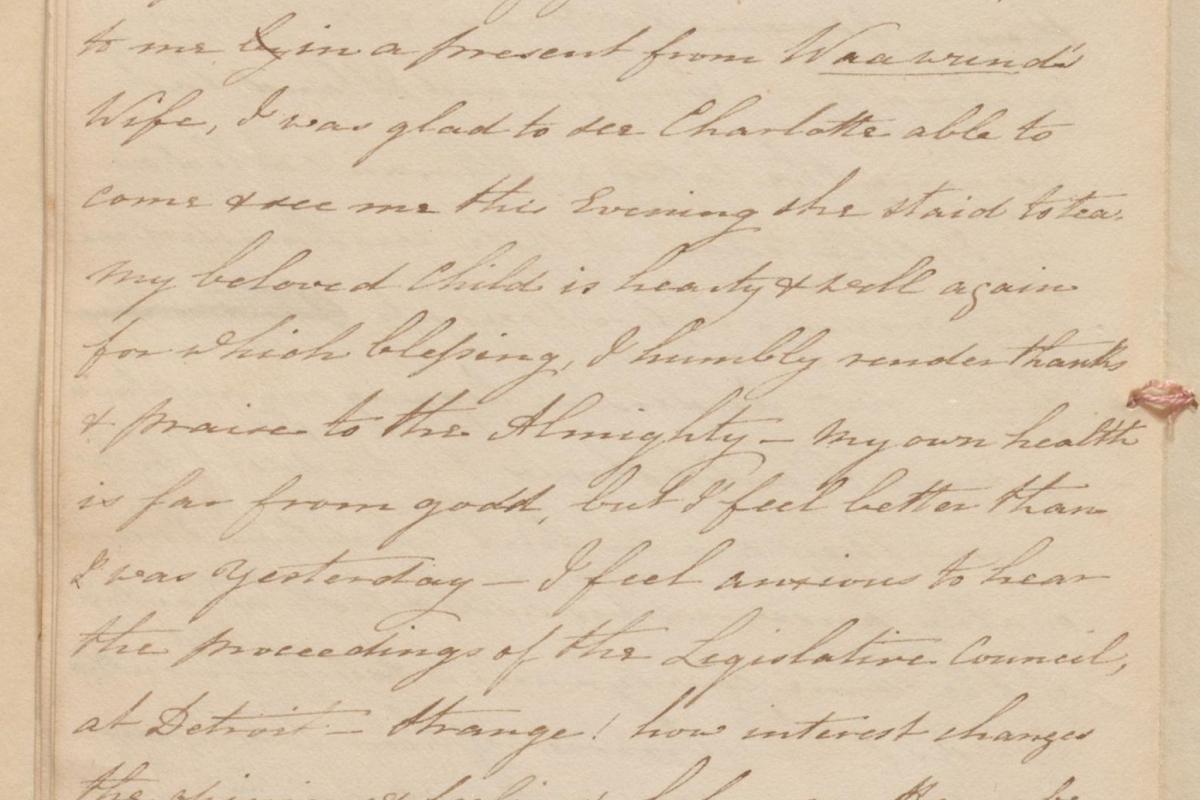 to me in a present from Waawund's
Wife, I was glad to see Charlotte able to
come & see me this Evening she staid to tea.
my beloved Child is hearty & well again
for which blessing, I humbly render thanks
& praise to the Almighty — my own health
is far from good, but I feel better than
I was yesterday — I feel anxious to hear
the proceedings of the Legislative Council,
at Detroit — strange! how interest changes
the